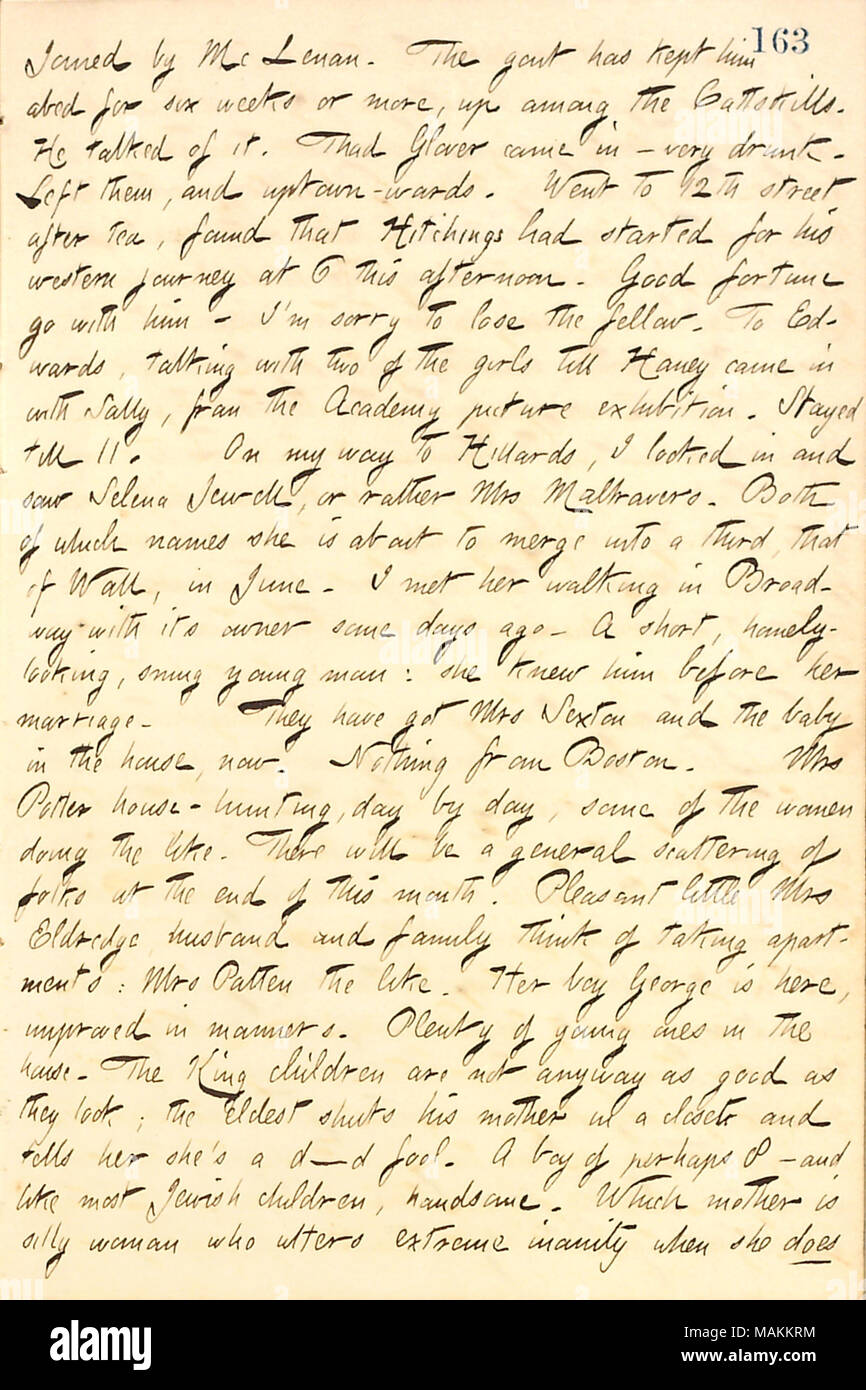 163
Joined by Mc Lenan. The gout has kept him
abed for six weeks or more, up among the Cattskills.
He talked of it. Thad Glover came in — very drunk.
Left them, and uptown-wards. Went to 12th street
after tea, found that Hitchings had started for his
western journey at 6 this afternoon. Good fortune
go with him — I'm sorry to lose the fellow. To Ed-
wards, talking with two of the girls till Haney came in
with Sally, from the Academy picture exhibition. Stayed
till 11. On my way to Hillards, I looked in and
saw Selena Jewell, or rather Mrs Maltravers. Both
of which names she is about to merge into a third, that
of Wall, in June. I met her walking in Broad-
way with its owner some days ago — A short, homely-
looking, snug young man: she knew him before her
marriage. They have got Mrs Sexton and the baby
in the house, now. Nothing from Boston. Mrs
Potter house-hunting, day by day, some of the women
doing the like. There will be a general scattering of
folks at the end of this month. Pleasant little Mrs
Eldredge, husband and family think of taking apart-
ments: Mrs Patten the like. Her boy George is here,
improved in manners. Plenty of young ones in the
house. The King children are not anyway as good as
they look; the eldest shuts his mother in a closet and
tells her she's a d—d fool. A boy of perhaps 8 — and
like most Jewish children, handsome. Which mother is
silly woman who utters extreme inanity when she does
alamy
Image ID: MAKKRM
www.alamy.com